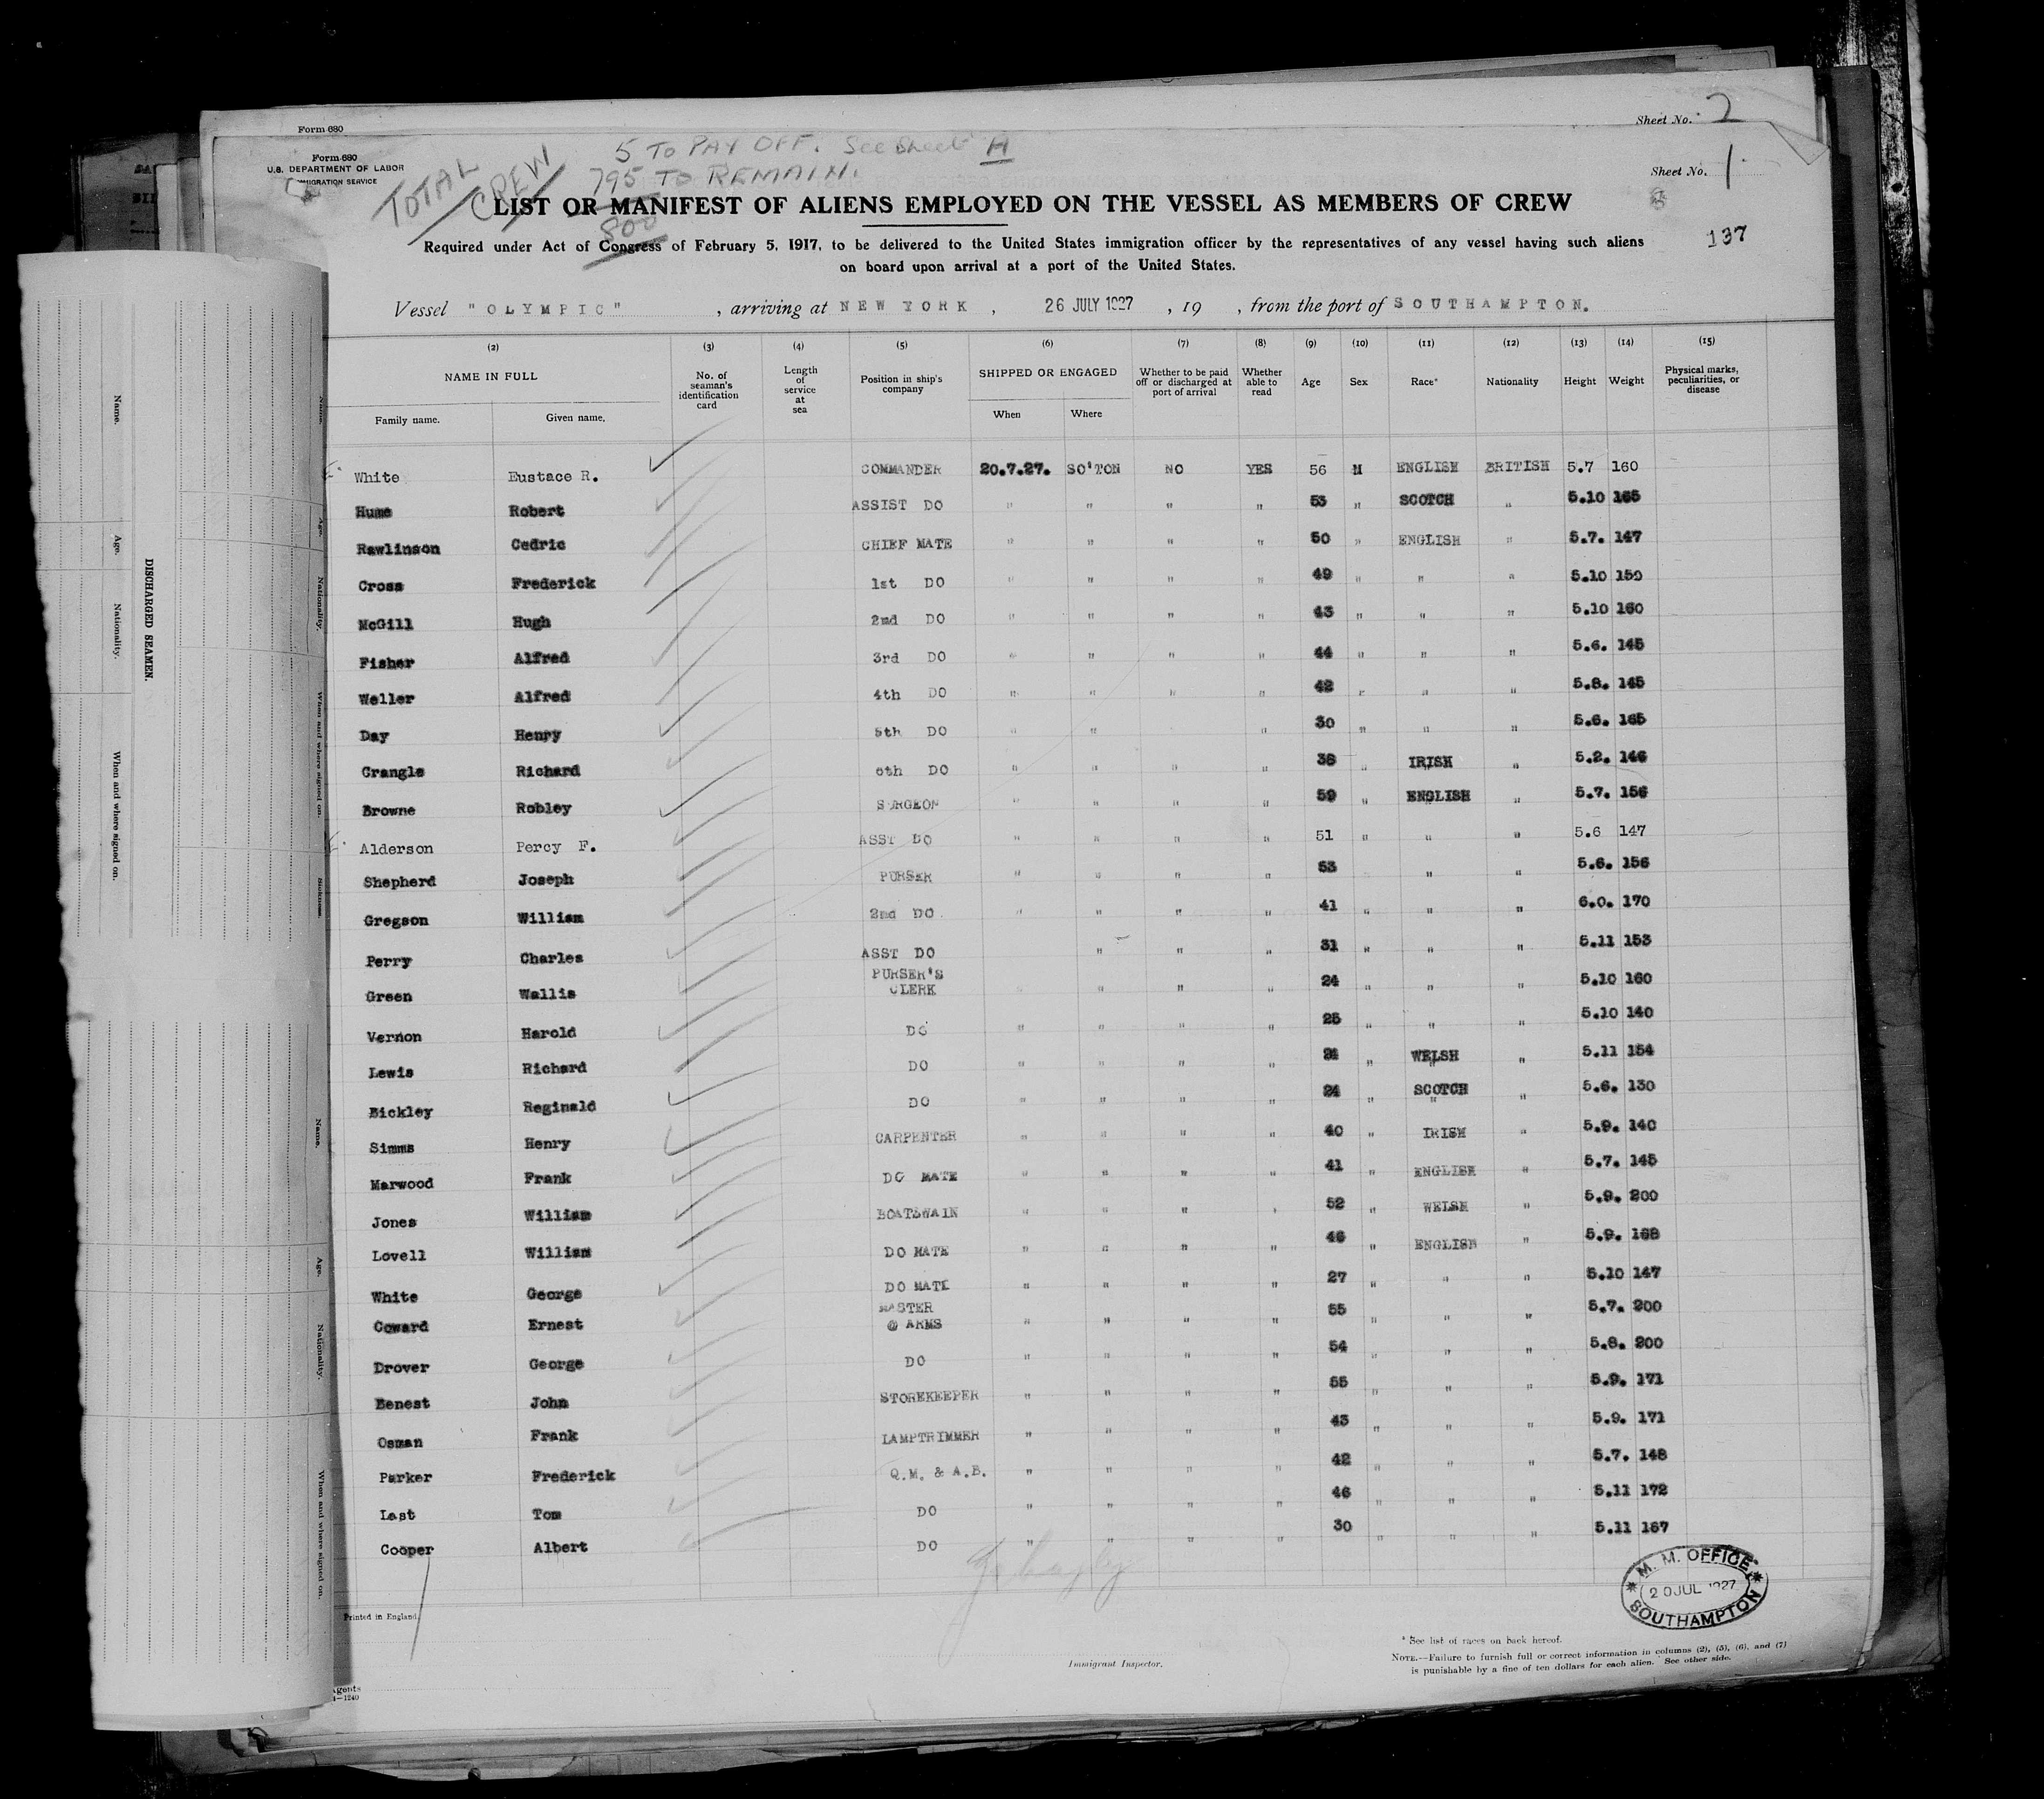 Form 680
Sheet No. 2
5 TO PAY OFF. See Sheet A
Form 680
U.S. DEPARTMENT OF LABOR
IMMIGRATION SERVICE
TOTAL CREW
795 TO REMAIN.
800
Sheet No. 1
LIST OR MANIFEST OF ALIENS EMPLOYED ON THE VESSEL AS MEMBERS OF CREW
137
Required under Act of Congress of February 5, 1917, to be delivered to the United States immigration officer by the representatives of any vessel having such aliens
on board upon arrival at a port of the United States.
Vessel "OLYMPIC", arriving at NEW YORK, 26 JULY 1927, 19 , from the port of SOUTHAMPTON.
(2) (3) (4) (5) (6) (7) (8) (9) (10) (11) (12) (13) (14) (15)
NAME IN FULL No. of seaman's identification card Length of service at sea Position in ship's company SHIPPED OR ENGAGED Whether to be paid off or discharged at port of arrival Whether able to read Age Sex Race* Nationality Height Weight Physical marks, peculiarities, or disease
Family name. Given name. When Where
White Eustace R. COMMANDER 20.7.27. SO'TON NO YES 56 M ENGLISH BRITISH 5.7 160
Hume Robert ASSIST DO " " " " 53 " SCOTCH " 5.10 165
Rawlinson Cedric CHIEF MATE " " " " 50 " ENGLISH " 5.7. 147
Cross Frederick 1st DO " " " " 49 " " " 5.10 150
McGill Hugh 2nd DO " " " " 43 " " " 5.10 160
Fisher Alfred 3rd DO " " " " 44 " " " 5.6. 145
Weller Alfred 4th DO " " " " 42 " " " 5.8. 145
Day Henry 5th DO " " " 30 " " " 5.6. 165
Crangle Richard 6th DO " " " " 38 " IRISH " 5.2. 146
Browne Robley SURGEON " " " " 59 " ENGLISH " 5.7. 156
Alderson Percy F. ASST DO " " " " 51 " " " 5.6 147
Shepherd Joseph PURSER " " " " 53 " " 5.6. 156
Gregson William 2nd DO " " " " 41 " " " 6.0. 170
Perry Charles ASST DO " " " 31 " " " 5.11 153
Green Wallis PURSER'S CLERK " " " " 24 " " " 5.10 160
Vernon Harold DO " " " " 25 " " " 5.10 140
Lewis Richard DO " " " " " WELSH " 5.11 154
Bickley Reginald DO " " " " 24 " SCOTCH " 5.6. 130
Simms Henry CARPENTER " " " " 40 " IRISH " 5.9. 140
Marwood Frank DO MATE " " " " 41 " ENGLISH " 5.7. 145
Jones William BOATSWAIN " " " " 52 " WELSH " 5.9. 200
Lovell William DO MATE " " " " 46 " ENGLISH " 5.9. 168
White George DO MATE " " " " 27 " " " 5.10 147
Coward Ernest MASTER @ ARMS " " " " 55 " " " 5.7. 200
Drover George DO " " " " 54 " " " 5.8. 200
Benest John STOREKEEPER " " " " 55 " " " 5.9. 171
Osman Frank LAMPTRIMMER " " " " 43 " " " 5.9. 171
Parker Frederick Q.M. & A.B. " " " " 42 " " " 5.7. 148
Last Tom DO " " " " 46 " " " 5.11 172
Cooper Albert DO " " " " 30 " " " 5.11 167
M. M. OFFICE
20 JUL 1927
SOUTHAMPTON
Printed in England.
* See list of races on back hereof.
Immigrant Inspector.
NOTE.—Failure to furnish full or correct information in columns (2), (5), (6), and (7)
is punishable by a fine of ten dollars for each alien. See other side.
Agents
—1240
DISCHARGED SEAMEN.
Name. Age. Nationality. When and where signed on.
Name. Age. Nationality. When and where signed on.
Name. Age. Nationality. When and where signed on.